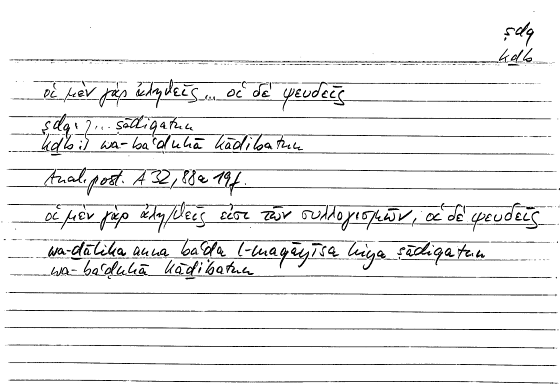 ṣdq
kḏb
οἱ μὲν γὰρ ἀληθεῖς... οἱ δὲ ψευδεῖς
ṣdq:} ... ṣādiqatun
kḏb:} wa-baʿḍuhā kāḏibatun
Anal. post. A 32, 88a 19f.
οἱ μὲν γὰρ ἀληθεῖς εἰσι τῶν συλλογισμῶν, οἱ δὲ ψευδεῖς
wa-ḏālika anna baʿḍa l-maqāyīsa hiya ṣādiqatun
wa-baʿḍuhā kāḏibatun